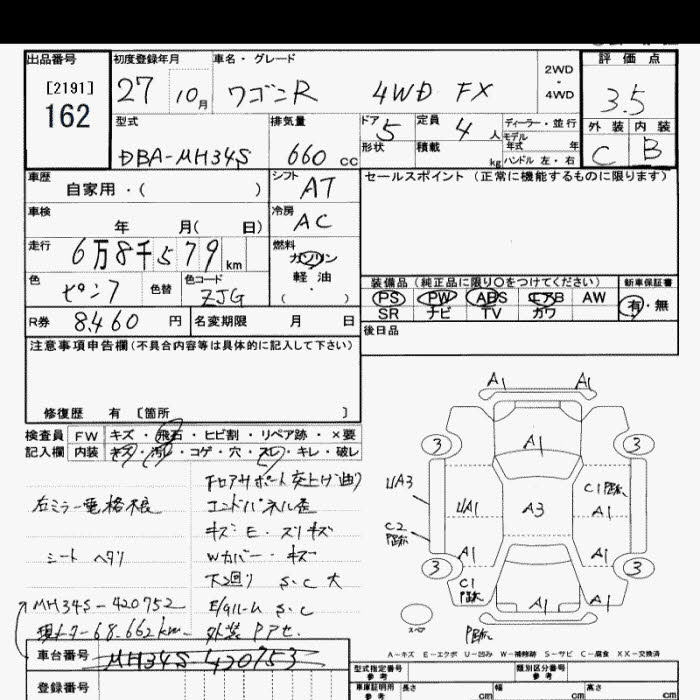 出品番号
[2191]
162
初度登録年月
27 10月
車名・グレード
ワゴンR 4WD FX
2WD
・
4WD
評価点
3.5
型式
DBA-MH34S
排気量
660 cc
ドア 5
形状
定員 4 人
積載 kg
ディーラー・並行
モデル
年式 年
ハンドル 左・右
外装 内装
C B
車歴
自家用・( )
シフト
AT
セールスポイント (正常に機能するものに限ります)
車検
年 月( 日)
冷房
AC
走行
6万8千579 km
燃料
ガソリン
軽油
( )
色
色替
色コード
ZJG
装備品(純正品に限り○をつけてください)
PS PW ABS エアB AW
SR ナビ TV カワ
新車保証書
有・無
R券 8,460 円
名変期限 月 日
後日品
注意事項申告欄(不具合内容等は具体的に記入して下さい)
修復歴 有 [箇所 ]
検査員 FW キズ・飛石・ヒビ割・リペア跡・×要
記入欄 内装 キズ・汚れ・コゲ・穴・スレ・キレ・破レ
フロアサポート突上げ曲り
右ミラー電格不良
エンドパネル歪
キズ E・スリキズ
シート ヘタリ
Wカバー・キズ
下回り S.C 大
MH34S-420752
E/gルーム S.C
現メーター68,662km
車台番号 MH34S 420753
登録番号
A1 A1
3 A1 3
UA3
UA1 A3 C1
A1
C2
A1 A1
3 C1 3
A1
スペア
A1
A-キズ E-エクボ U-凹み W-補修跡 S-サビ C-腐食 XX-交換済
型式指定番号
参考
類別区分番号
参考
車庫証明用
参考
長さ cm
幅 cm
高さ cm